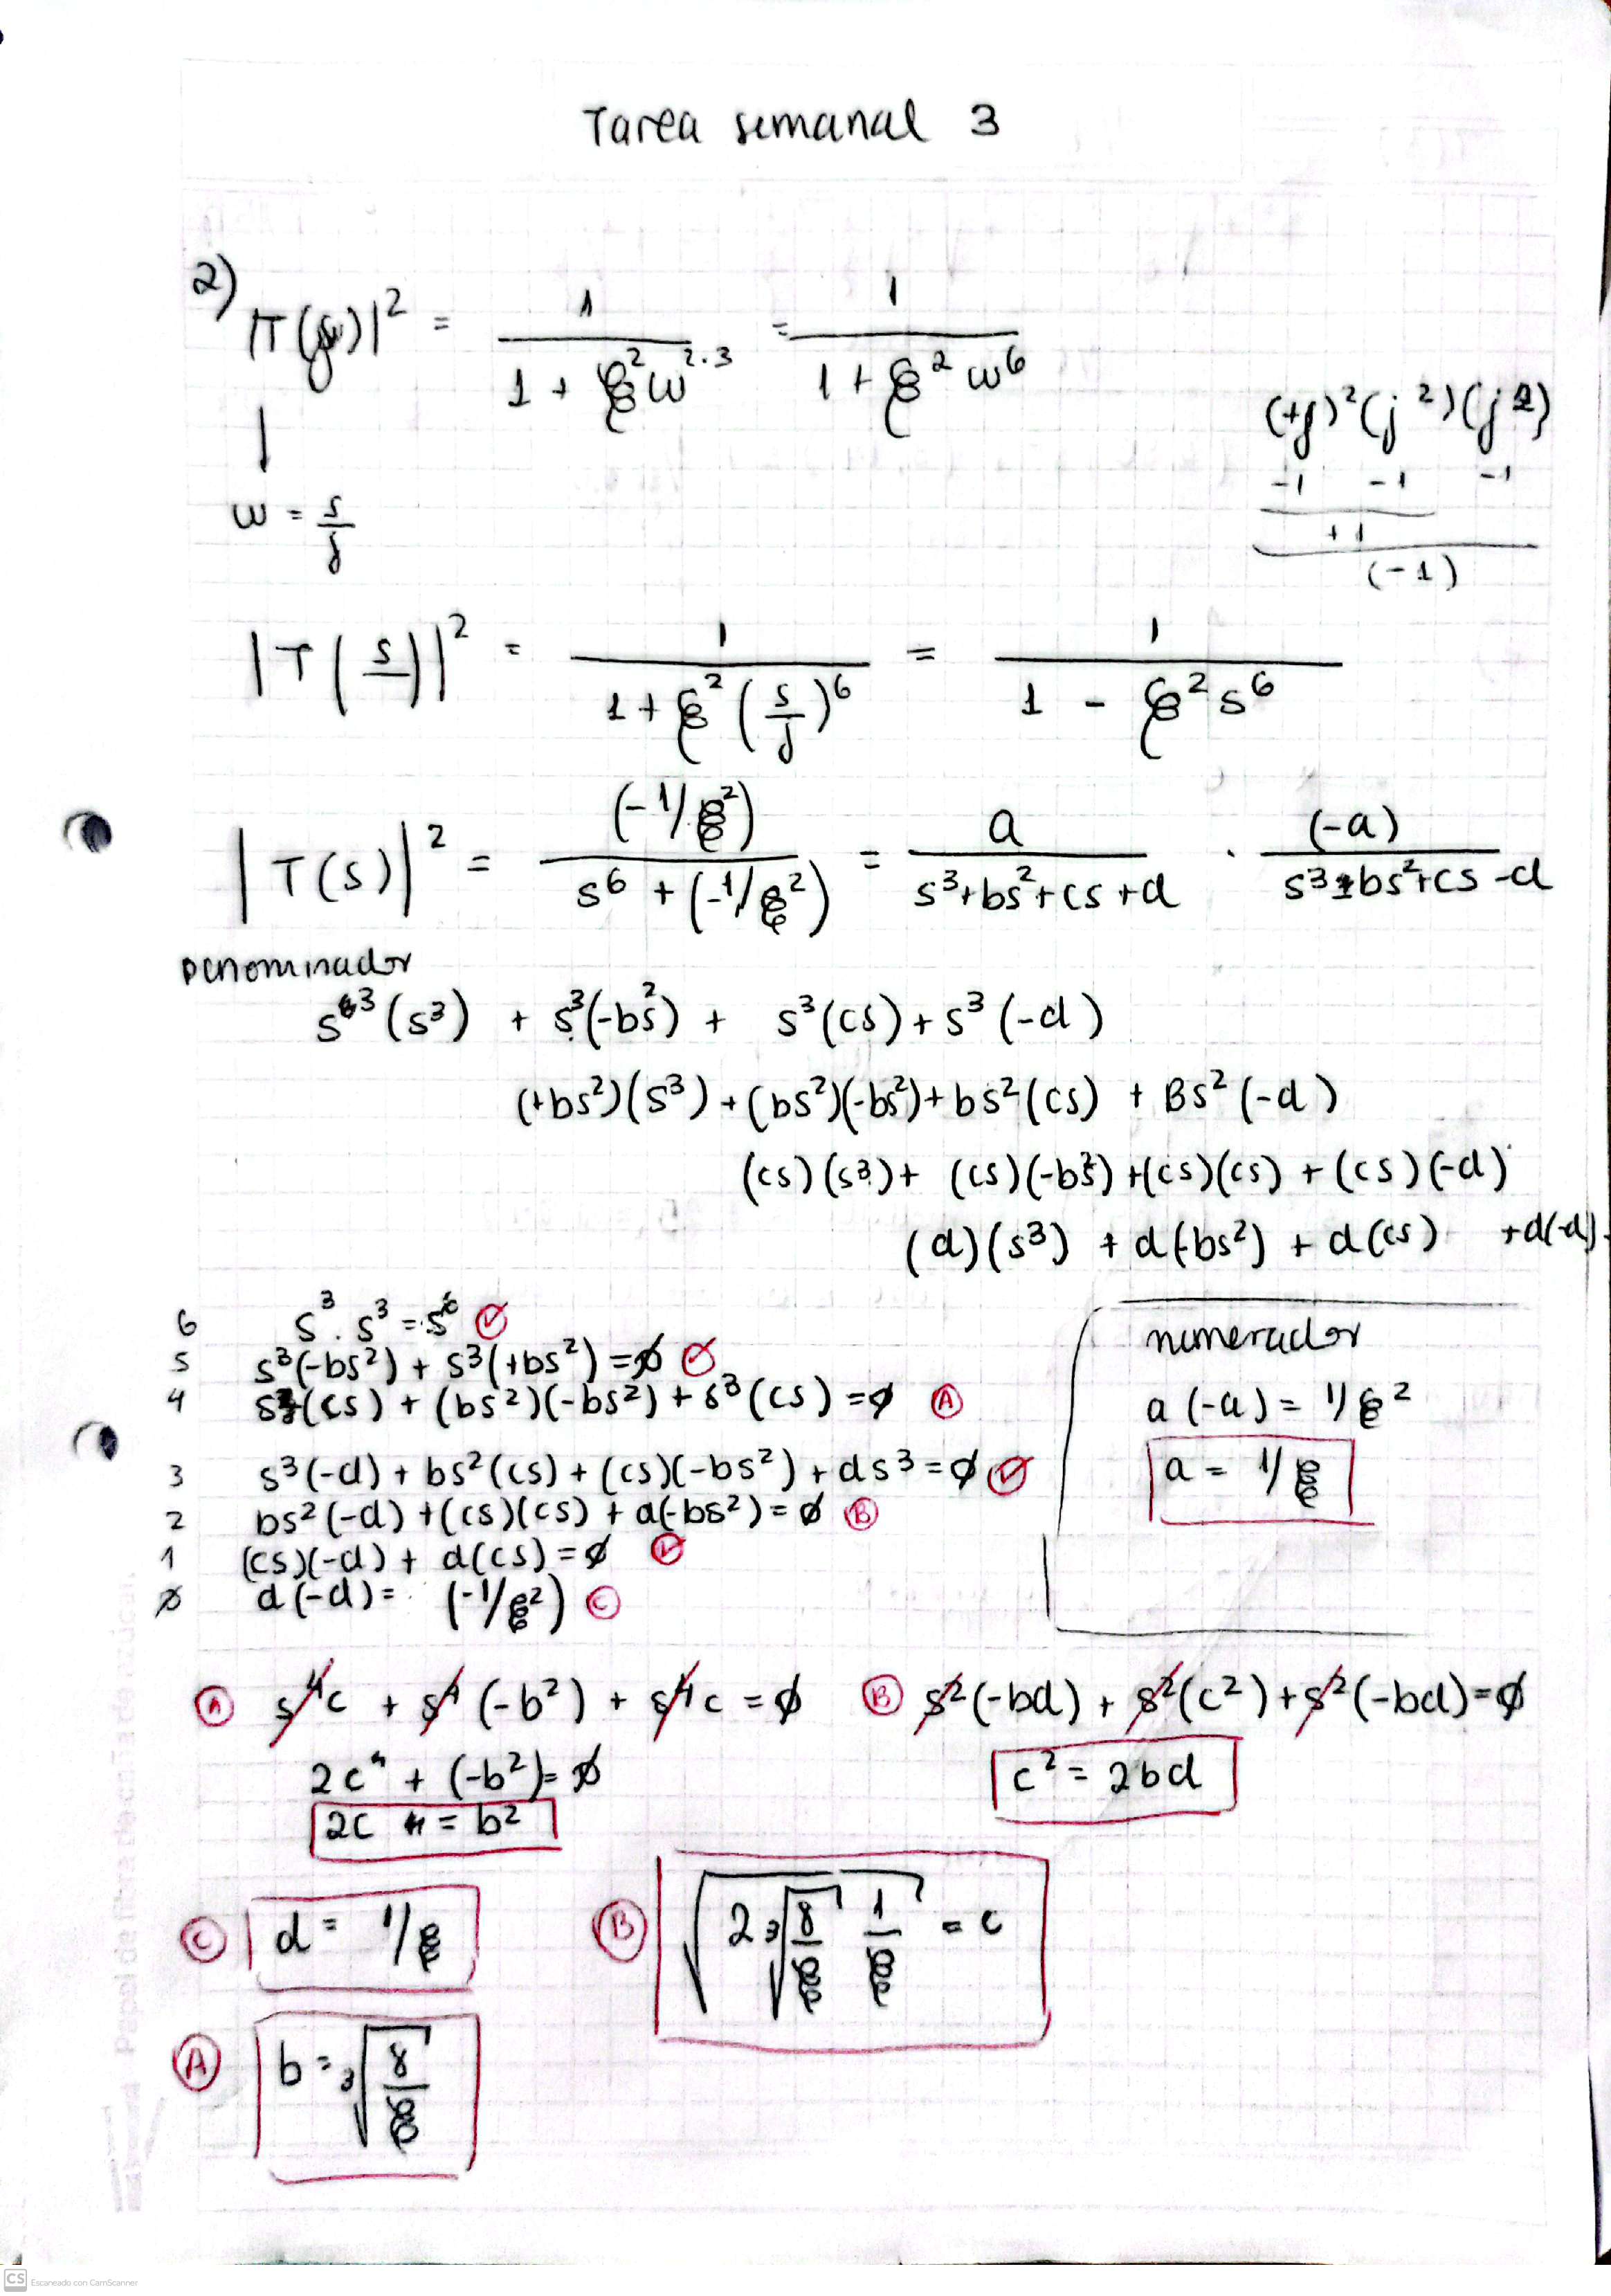 Tarea semanal 3
2) |T(jω)|² = 1 / (1 + ξ² ω^(2·3)) = 1 / (1 + ξ² ω⁶)
(+j)² (j²) (j²)
-1 -1 -1
+1
(-1)
ω = s/j
|T(s/)|² = 1 / (1 + ξ² (s/j)⁶) = 1 / (1 - ξ² s⁶)
|T(s)|² = (-1/ξ²) / (s⁶ + (-1/ξ²)) = a / (s³+bs²+cs+d) · (-a) / (s³-bs²+cs-d)
Denominador
s³(s³) + s³(-bs²) + s³(cs) + s³(-d)
(+bs²)(s³) + (bs²)(-bs²) + bs²(cs) + Bs²(-d)
(cs)(s³) + (cs)(-bs²) + (cs)(cs) + (cs)(-d)
(d)(s³) + d(-bs²) + d(cs) + d(-d)
6 s³ . s³ = s⁶ ✓
5 s³(-bs²) + s³(+bs²) = ø ✓
4 s³(cs) + (bs²)(-bs²) + s³(cs) = ø Ⓐ
3 s³(-d) + bs²(cs) + (cs)(-bs²) + ds³ = ø ✓
2 bs²(-d) + (cs)(cs) + d(-bs²) = ø Ⓑ
1 (cs)(-d) + d(cs) = ø ✓
ø d(-d) = (-1/ξ²) Ⓒ
numerador
a(-a) = 1/ξ²
a = 1/ξ
Ⓐ s⁴c + s⁴(-b²) + s⁴c = ø
2c + (-b²) = ø
2c = b²
Ⓑ s²(-bd) + s²(c²) + s²(-bd) = ø
c² = 2bd
Ⓒ d = 1/ξ
Ⓑ √(2 ³√(8/ξ) 1/ξ) = c
Ⓐ b = ³√(8/ξ)
CS Escaneado con CamScanner